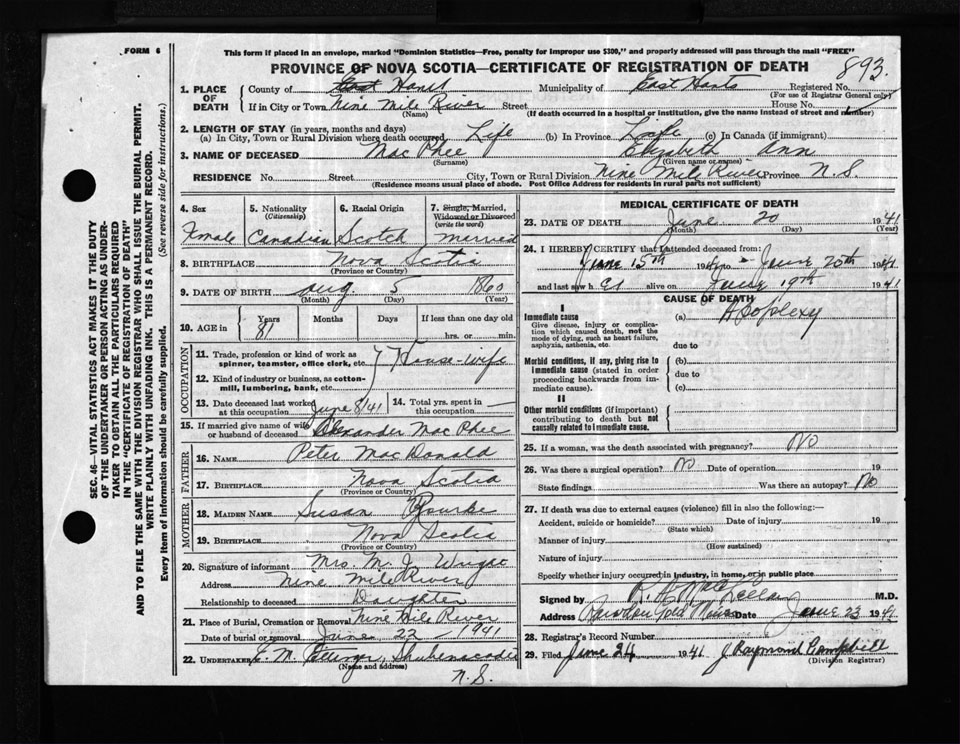 FORM 6
This form if placed in an envelope, marked "Dominion Statistics—Free, penalty for improper use $300," and properly addressed will pass through the mail "FREE"
PROVINCE OF NOVA SCOTIA—CERTIFICATE OF REGISTRATION OF DEATH
893.
1. PLACE OF DEATH
County of East Hants Municipality of East Hants Registered No.
(For use of Registrar General only)
If in City or Town Nine Mile River Street House No.
(Name) (If death occurred in a hospital or institution, give name instead of street and number)
2. LENGTH OF STAY (in years, months and days)
(a) In City, Town or Rural Division where death occurred Life (b) In Province Life (c) In Canada (if immigrant)
3. NAME OF DECEASED MacPhee Elizabeth Ann
(Surname) (Given name or names)
RESIDENCE No. Street City, Town or Rural Division Nine Mile River Province N.S.
(Residence means usual place of abode. Post Office Address for residents in rural parts not sufficient)
4. Sex 5. Nationality (Citizenship) 6. Racial Origin 7. Single, Married, Widowed or Divorced (write the word)
Female Canadian Scotch Married
8. BIRTHPLACE Nova Scotia
(Province or Country)
9. DATE OF BIRTH Aug 5 1860
(Month) (Day) (Year)
10. AGE in Years Months Days If less than one day old
81 hrs. or min.
OCCUPATION
11. Trade, profession or kind of work as spinner, teamster, office clerk, etc. House-wife
12. Kind of industry or business, as cotton-mill, lumbering, bank, etc.
13. Date deceased last worked at this occupation June 8/41 14. Total yrs. spent in this occupation
15. If married give name of wife or husband of deceased Alexander MacPhee
FATHER
16. NAME Peter MacDonald
17. BIRTHPLACE Nova Scotia
(Province or Country)
MOTHER
18. MAIDEN NAME Susan Rourke
19. BIRTHPLACE Nova Scotia
(Province or Country)
20. Signature of informant Mrs. M. J.
Address Nine Mile River
Relationship to deceased Daughter
21. Place of Burial, Cremation or Removal Nine Mile River
Date of burial or removal June 22 - 1941
22. UNDERTAKER Shubenacadie
(Name and address)
N.S.
MEDICAL CERTIFICATE OF DEATH
23. DATE OF DEATH June 20 1941
(Month) (Day) (Year)
24. I HEREBY CERTIFY that I attended deceased from:
June 15th 1941 to June 20th 1941
and last saw h er alive on June 19th 1941
CAUSE OF DEATH
I
Immediate cause (a) Apoplexy
Give disease, injury or complication which caused death, not the mode of dying, such as heart failure, asphyxia, asthenia, etc.
due to
Morbid conditions, if any, giving rise to immediate cause (stated in order proceeding backwards from immediate cause).
(b)
due to
(c)
II
Other morbid conditions (if important) contributing to death but not causally related to immediate cause.
25. If a woman, was the death associated with pregnancy? No
26. Was there a surgical operation? No Date of operation 19
State findings Was there an autopsy? No
27. If death was due to external causes (violence) fill in also the following:—
Accident, suicide or homicide? Date of injury 19
(State which)
Manner of injury
(How sustained)
Nature of injury
Specify whether injury occurred in industry, in home, or in public place
Signed by R. A. MacLellan M.D.
Address Rawdon Gold Mines Date June 23 1941
28. Registrar's Record Number
29. Filed June 24 1941 J Raymond Campbell
(Division Registrar)
SEC. 46—VITAL STATISTICS ACT MAKES IT THE DUTY
OF THE UNDERTAKER OR PERSON ACTING AS UNDER-
TAKER TO OBTAIN ALL THE PARTICULARS REQUIRED
IN THE "CERTIFICATE OF REGISTRATION OF DEATH"
AND TO FILE THE SAME WITH THE DIVISION REGISTRAR WHO SHALL ISSUE THE BURIAL PERMIT.
WRITE PLAINLY WITH UNFADING INK. THIS IS A PERMANENT RECORD.
Every item of Information should be carefully supplied. (See reverse side for instructions.)